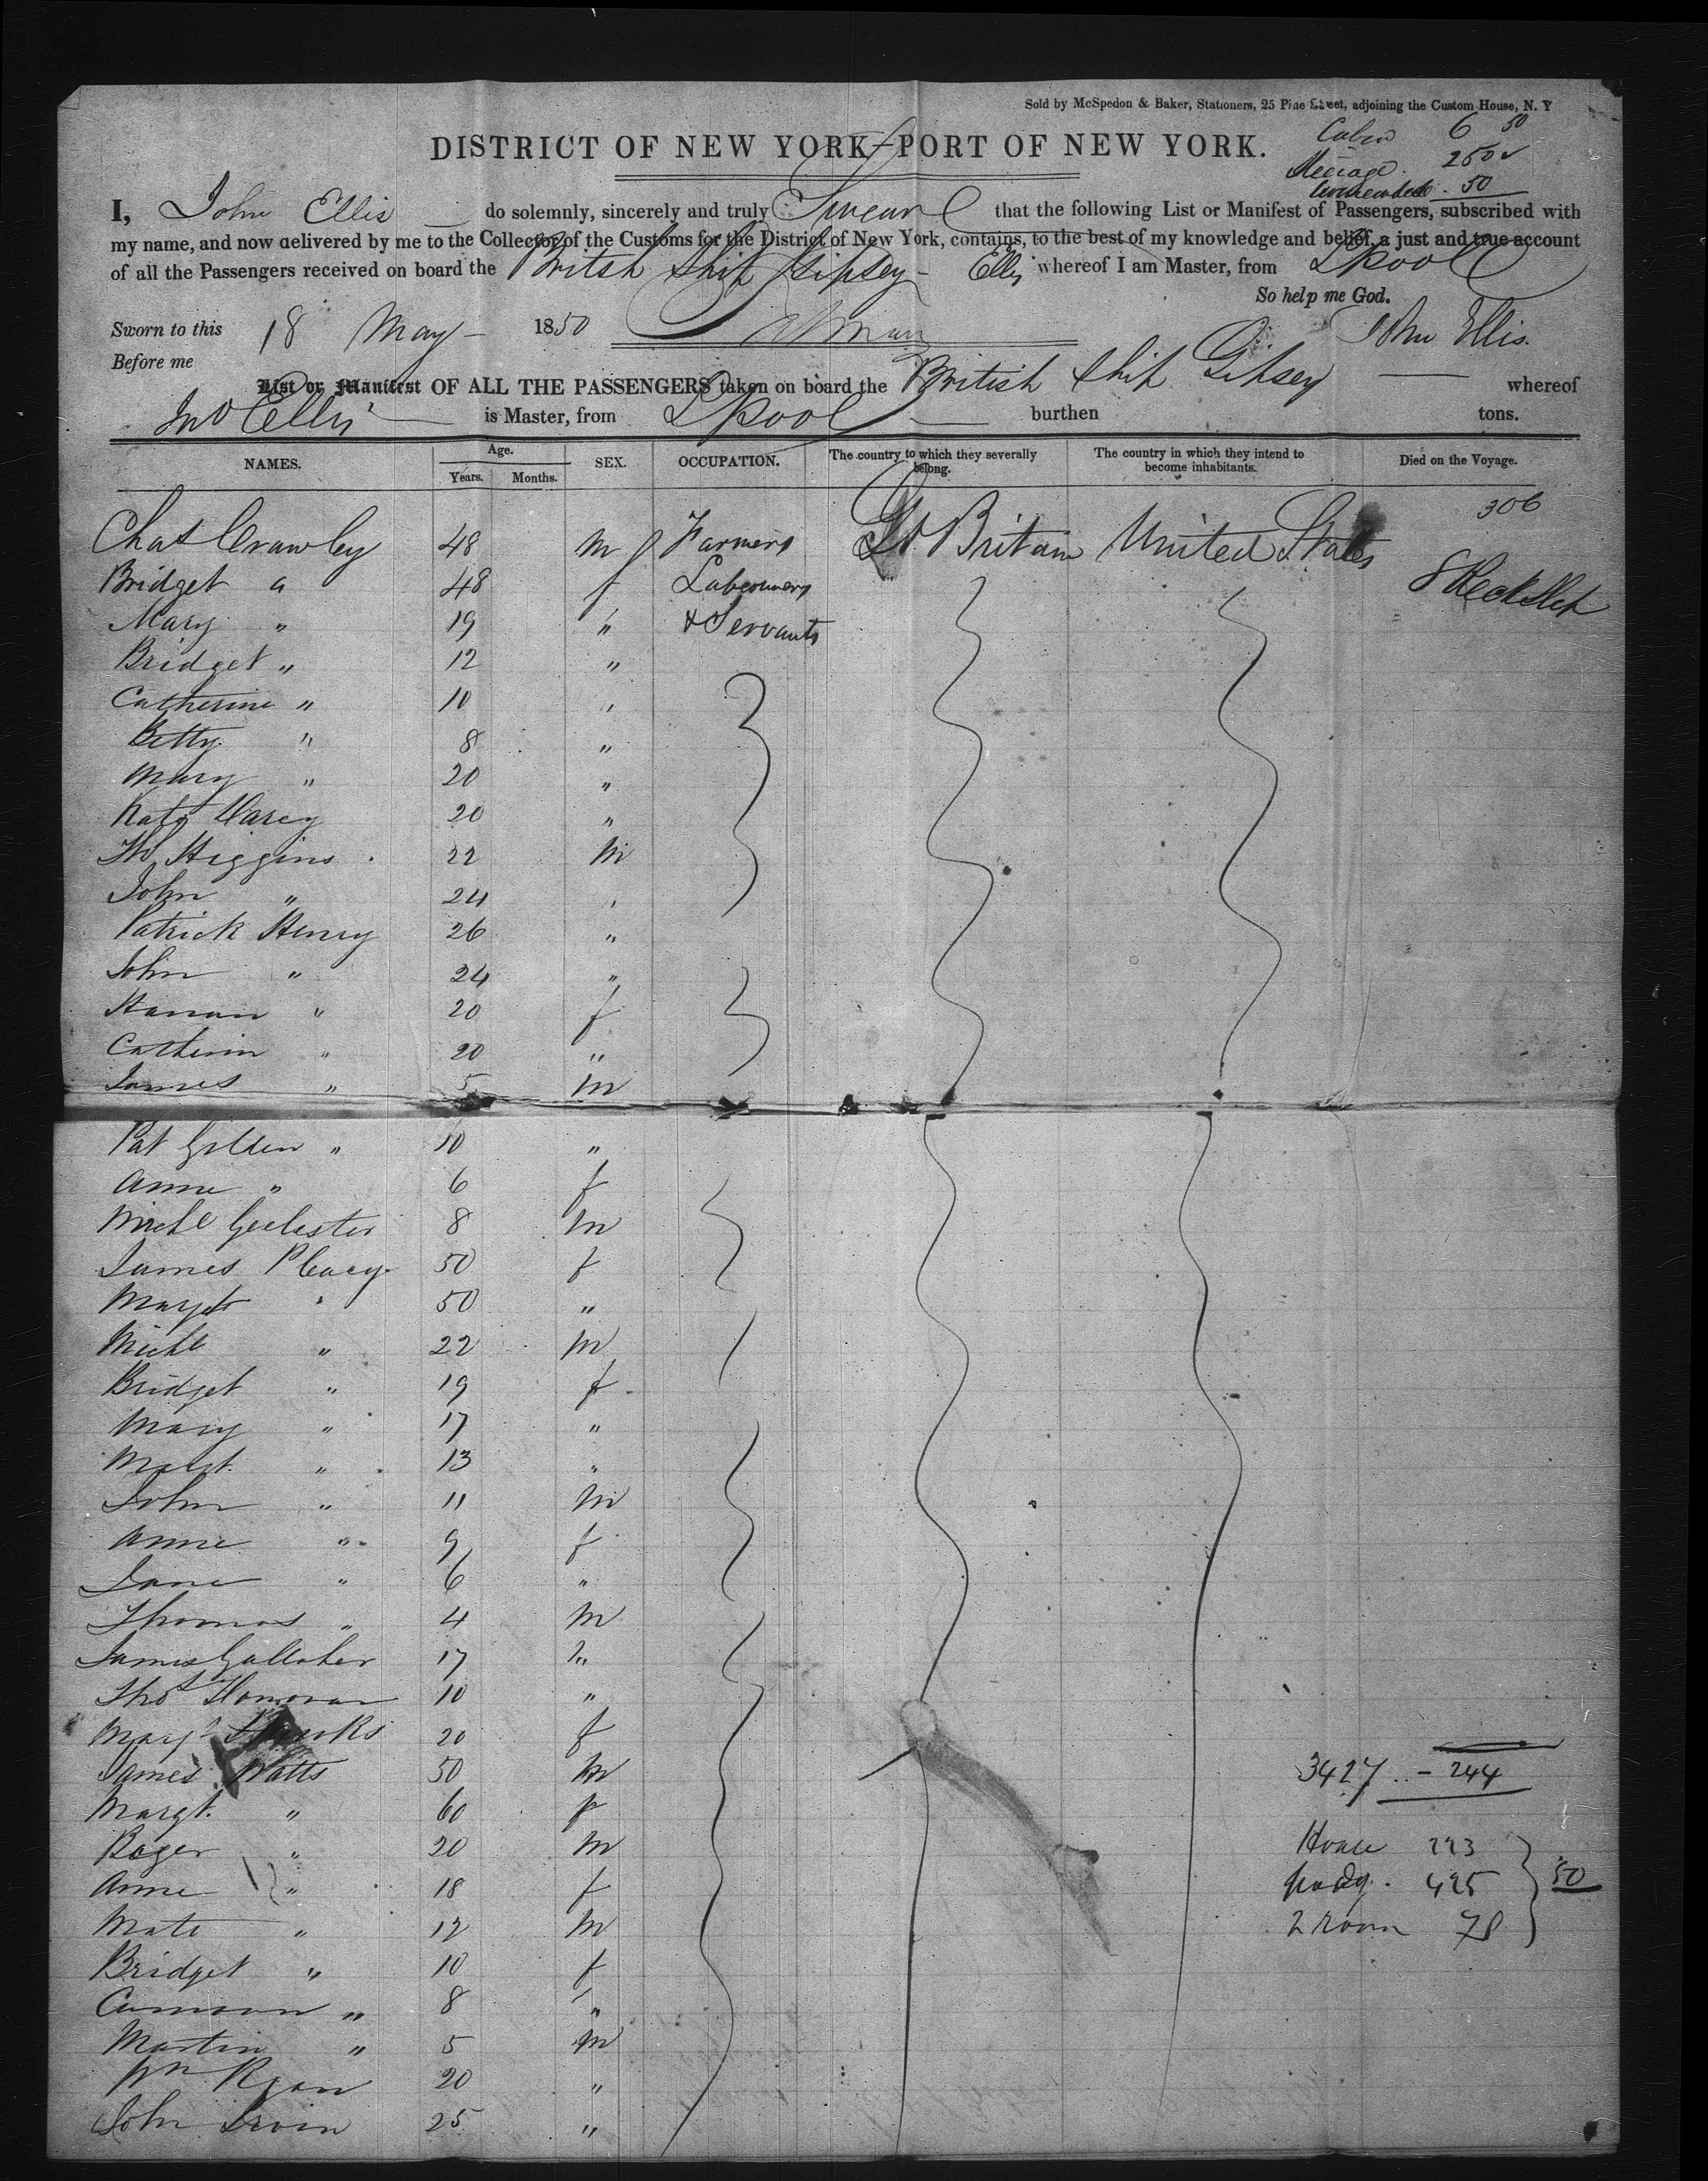 Sold by McSpedon & Baker, Stationers, 25 Pine Street, adjoining the Custom-House, N. Y
DISTRICT OF NEW YORK—PORT OF NEW YORK.
Cabin 6 50
Steerage 250
50
I, John Ellis do solemnly, sincerely and truly Swear that the following List or Manifest of Passengers, subscribed with
my name, and now delivered by me to the Collector of the Customs for the District of New York, contains, to the best of my knowledge and belief, a just and true account
of all the Passengers received on board the British Ship Gipsey - Ellis whereof I am Master, from LPool
So help me God.
Sworn to this 18 May 1850 John Ellis.
Before me
List or Manifest OF ALL THE PASSENGERS taken on board the British Ship Gipsey whereof
Jno Ellis is Master, from LPool burthen tons.
NAMES. Age. Years. Months. SEX. OCCUPATION. The country to which they severally belong. The country in which they intend to become inhabitants. Died on the Voyage.
306
Chas Crawley 48 m Farmers Gt Britain United States
Bridget " 48 f Labourers
Mary " 19 " & Servants
Bridget " 12 "
Catherine " 10 "
Betty " 8 "
Mary " 20 "
Kate Darcy 20 "
Th Higgins 22 m
John " 24 "
Patrick Henry 26 "
John " 24 "
Hanan " 20 f
Catherin " 20 "
James " 5 m
Pat Golden " 10 "
Anne " 6 f
Michl 8 m
James 50 f
Margt " 50 "
Michl " 22 m
Bridget " 19 f
Mary " 17 "
Margt. " 13 "
John " 11 m
Anne " 9 f
Jane " 6 "
Thomas " 4 m
James Gallaher 17 "
Thos Honovan 10 "
Margt 20 f
James Watts 50 m
3427 .. - 244
Margt. " 60 f
Roger " 20 m
House 223
Anne " 18 f
425 50
Mate " 12 m
2 room 78
Bridget " 10 f
8 "
Martin " 5 m
Wm Ryan 20 "
John Irvin 25 "